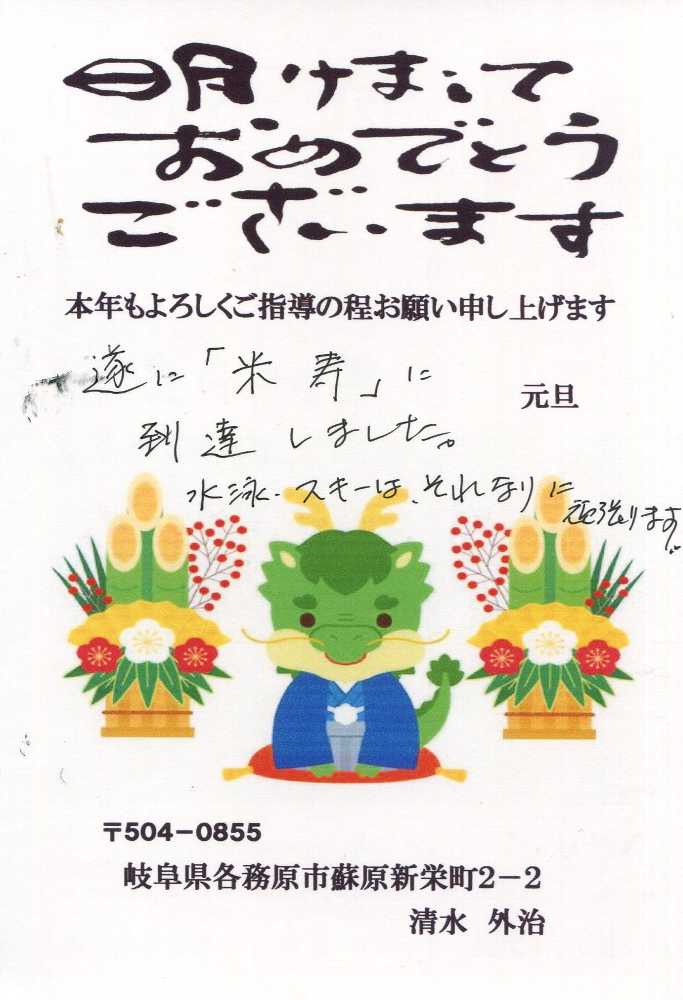 明けまして
おめでとう
ございます
本年もよろしくご指導の程お願い申し上げます
遂に「米寿」に
元旦
到達しました。
水泳・スキーは、それなりに
頑張ります。
〒504-0855
岐阜県各務原市蘇原新栄町2-2
清水 外治